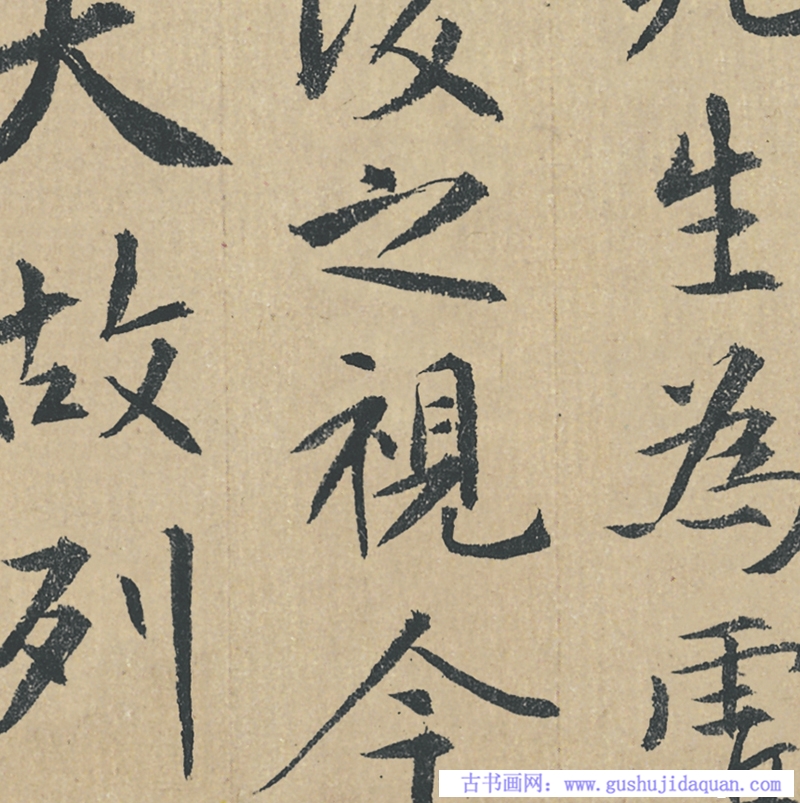 生為虛
後之視今
夫故列
古书画网：www.gushujidaquan.com